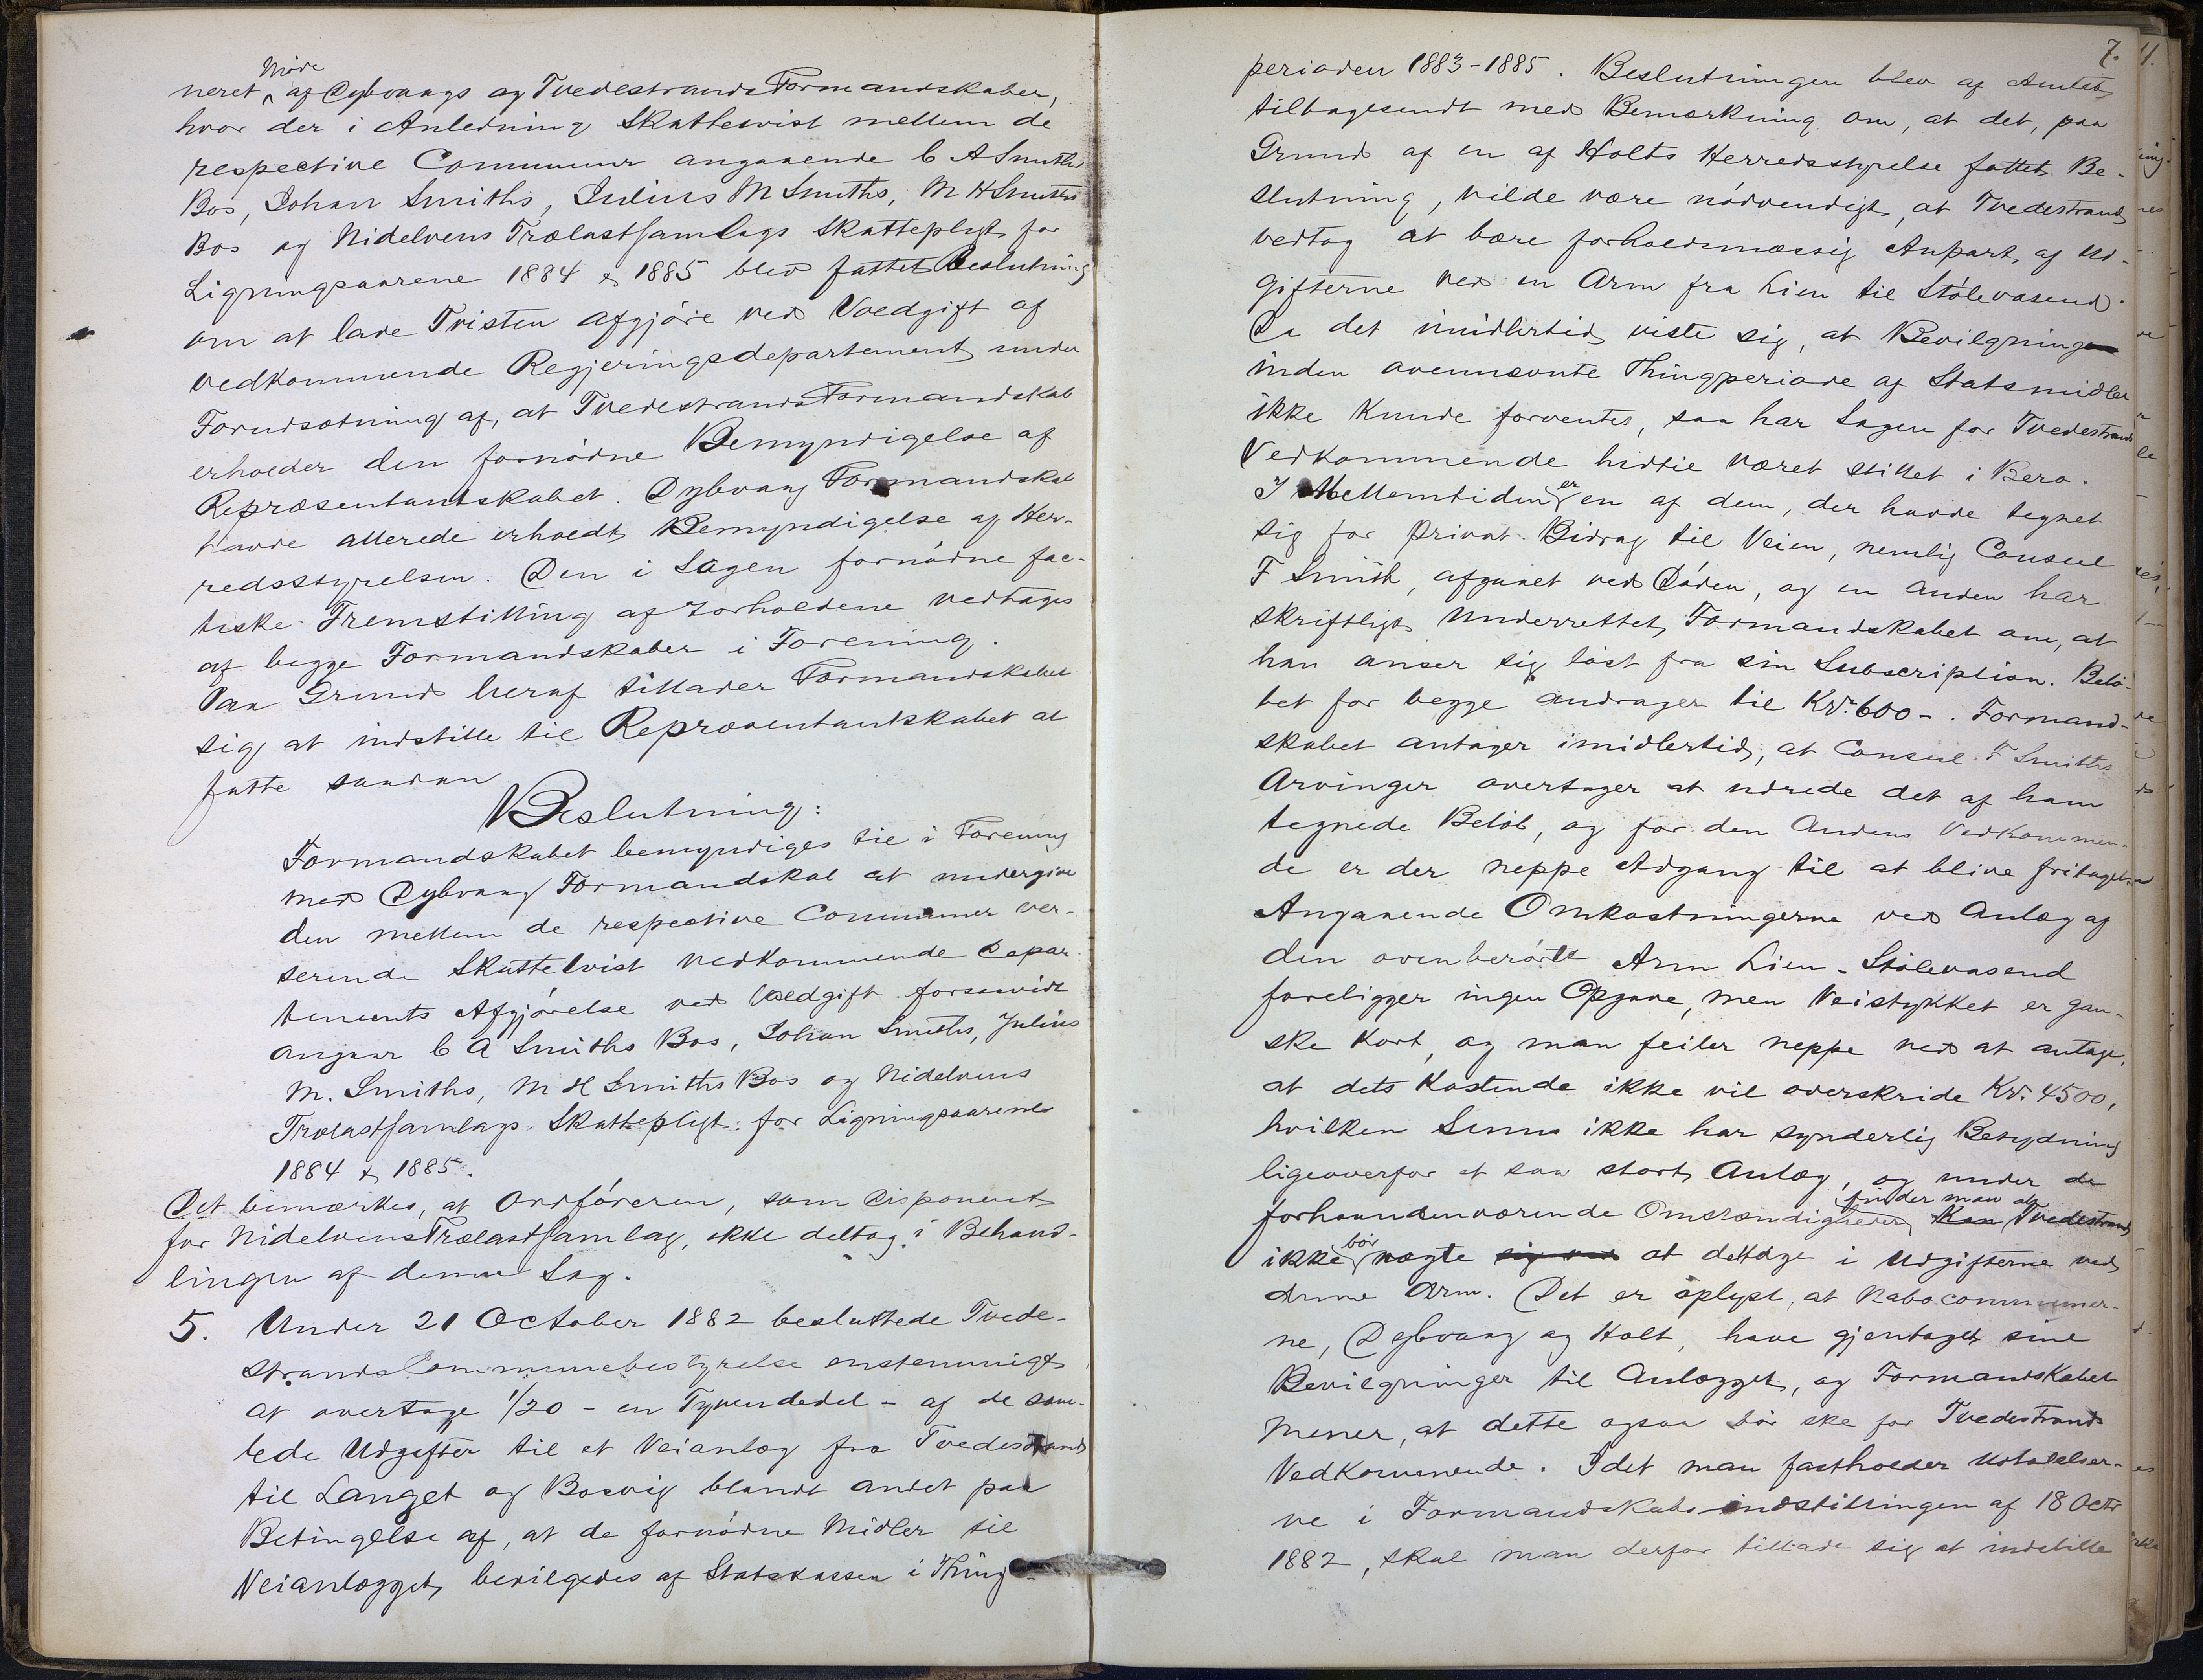 Møde
neret af Dybvaags og Tvedestrands Formandskaber,
hvor der i Anledning Skattetvist mellem de
respective Communer angaaende C A Smiths
Bos, Johan Smiths, Julius M Smiths, M H Smiths
Bos og Nidelvens Trælastsamlags Skattepligt for
Ligningsaarene 1884 & 1885 blev fattet Beslutning
om at lade Tvisten afgjøre ved Voldgift af
vedkommende Regjeringsdepartement under
Forudsætning af, at Tvedestrands Formandskab
erholder den fornødne Bemyndigelse af
Repræsentantskabet. Dybvaag Formandskab
havde allerede erholdt Bemyndigelse af Her-
redsstyrelsen. Den i Sagen fornødne fac-
tiske Fremstilling af Forholdene vedtages
af begge Formandskaber i Forening.
Paa Grund heraf tillader Formandskabet
sig at indstille til Repræsentantskabet at
fatte saadan
Beslutning:
Formandskabet bemyndiges til i Forening
med Dybvaag Formandskab at undergive
den mellem de respective Communer ver-
serende Skattetvist vedkommende Depar-
tements Afgjørelse ved Voldgift forsaavidt
angaar C A Smiths Bos, Johan Smiths, Julius
M. Smiths, M H Smiths Bos og Nidelvens
Trælastsamlags Skattepligt for Ligningsaarene
1884 & 1885.
Det bemærkes, at Ordføreren, som Disponent
for Nidelvens Trælastsamlag, ikke deltog i Behand-
lingen af denne Sag.
5. Under 21 October 1882 besluttede Tvede-
strands Communebestyrelse enstemmigt
at overtage 1/20 - en Tyvendedel - af de sam-
lede Udgifter til et Veianlæg fra Tvedestrand
til Langet og Bosvig blandt andet paa
Betingelse af, at de fornødne Midler til
Veianlægget bevilgedes af Statskassen i Thing-
7.
perioden 1883-1885. Beslutningen blev af Amtet
tilbagesendt med Bemærkning om, at det, paa
Grund af en af Holts Herredsstyrelse fattet Be-
slutning, vilde være nødvendigt, at Tvedestrand
vedtog at bære forholdsmæssig Anpart af Ud-
gifterne ved en Arm fra Lien til Stølevasend.
Da det imidlertid viste sig, at Bevilgning
inden ovennævnte Thingperiode af Statsmidler
ikke kunde forventes, saa har Sagen for Tvedestrands
Vedkommende hidtil været stillet i Bero.
I Mellemtiden er en af dem, der havde tegnet
sig for privat Bidrag til Veien, nemlig Consul
F Smith, afgaaet ved Døden, og en anden har
skriftligt underrettet Formandskabet om, at
han anser sig løst fra sin Subscription. Belø-
bet for begge andrager til Kr. 600-. Formand-
skabet antager imidlertid, at Consul F Smiths
Arvinger overtager at udrede det af ham
tegnede Beløb, og for den Andens Vedkommen-
de er der neppe Adgang til at blive fritaget
Angaaende Omkostningerne ved Anlæg af
den ovenberørte Arm Lien - Stølevasend
foreligger ingen Opgave, men Veistykket er gan-
ske kort, og man feiler neppe ved at antage,
at dets Kostende ikke vil overskride Kr. 4500,
hvilken Sum ikke har synderlig Betydning
ligeoverfor et saa stort Anlæg, og under de
forhaandenværende Omstændigheder finder man at Kan Tvedestrand
ikke bør nægte sig ved at deltage i Udgifterne ved
denne Arm. Det er oplyst, at Nabocommuner-
ne, Dybvaag og Holt, have gjentaget sine
Bevilgninger til Anlægget, og Formandskabet
mener, at dette ogsaa bør ske for Tvedestrands
Vedkommende. Idet man fastholder Udtalelser-
ne i Formandskabsindstillingen af 18 Octr
1882, skal man derfor tillade sig at indstille